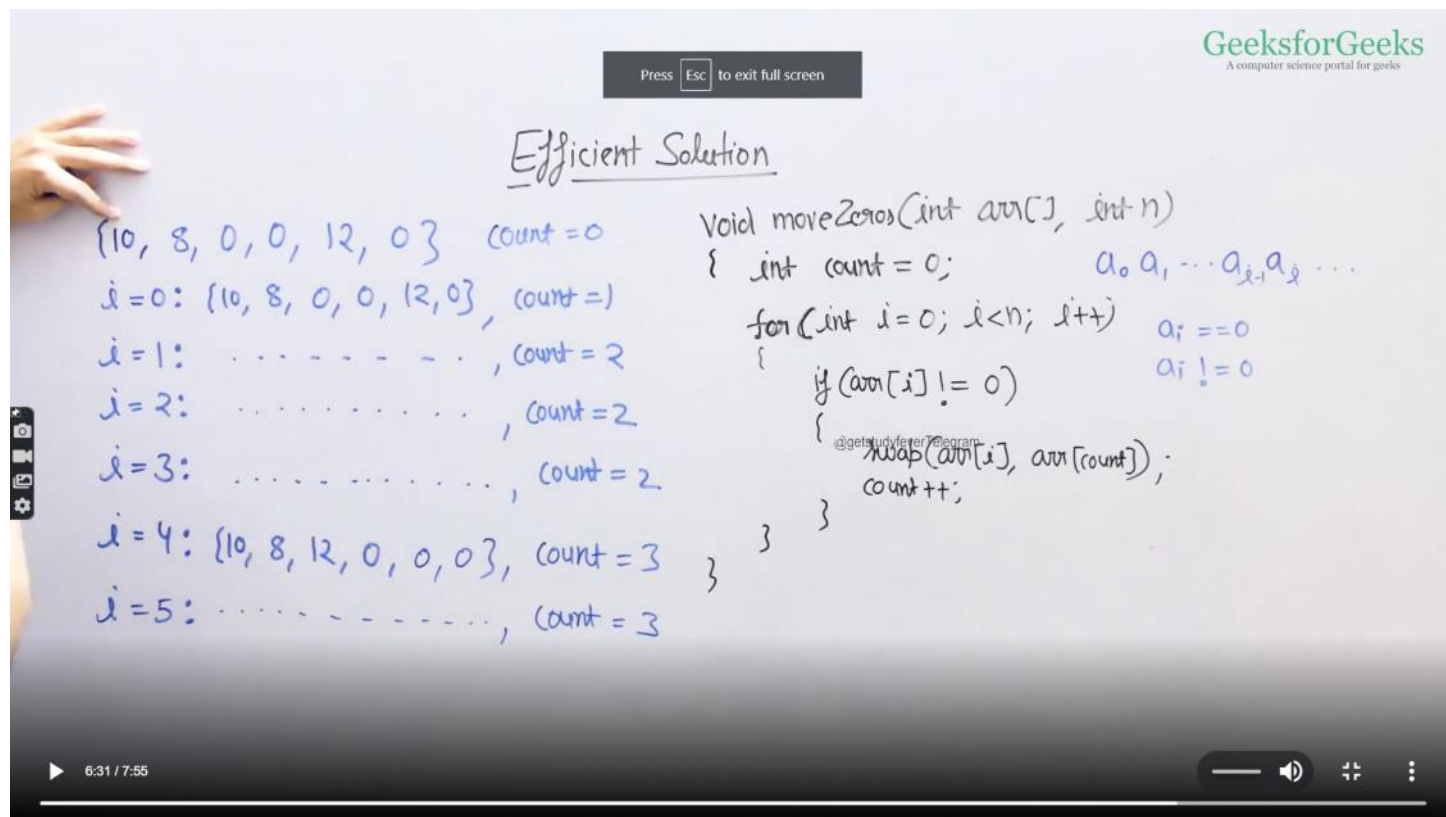 GeeksforGeeks
A computer science portal for geeks
Press Esc to exit full screen
Efficient Solution
{10, 8, 0, 0, 12, 0} count = 0
i = 0: {10, 8, 0, 0, 12, 0}, count = 1
i = 1: . . . . . . - - ., count = 2
i = 2: . . . . . . . . . ., count = 2
i = 3: . . . . . . . . . . ., count = 2
i = 4: {10, 8, 12, 0, 0, 0}, count = 3
i = 5: . . . . . - - - - - - . . ., count = 3
void moveZeros(int arr[], int n)
{ int count = 0;
for(int i = 0; i<n; i++)
{
if (arr[i] != 0)
{
@getstudyfeverTelegram
swap(arr[i], arr[count]);
count++;
}
}
}
a0 a1 ... ai-1 ai ...
ai == 0
ai != 0
6:31 / 7:55